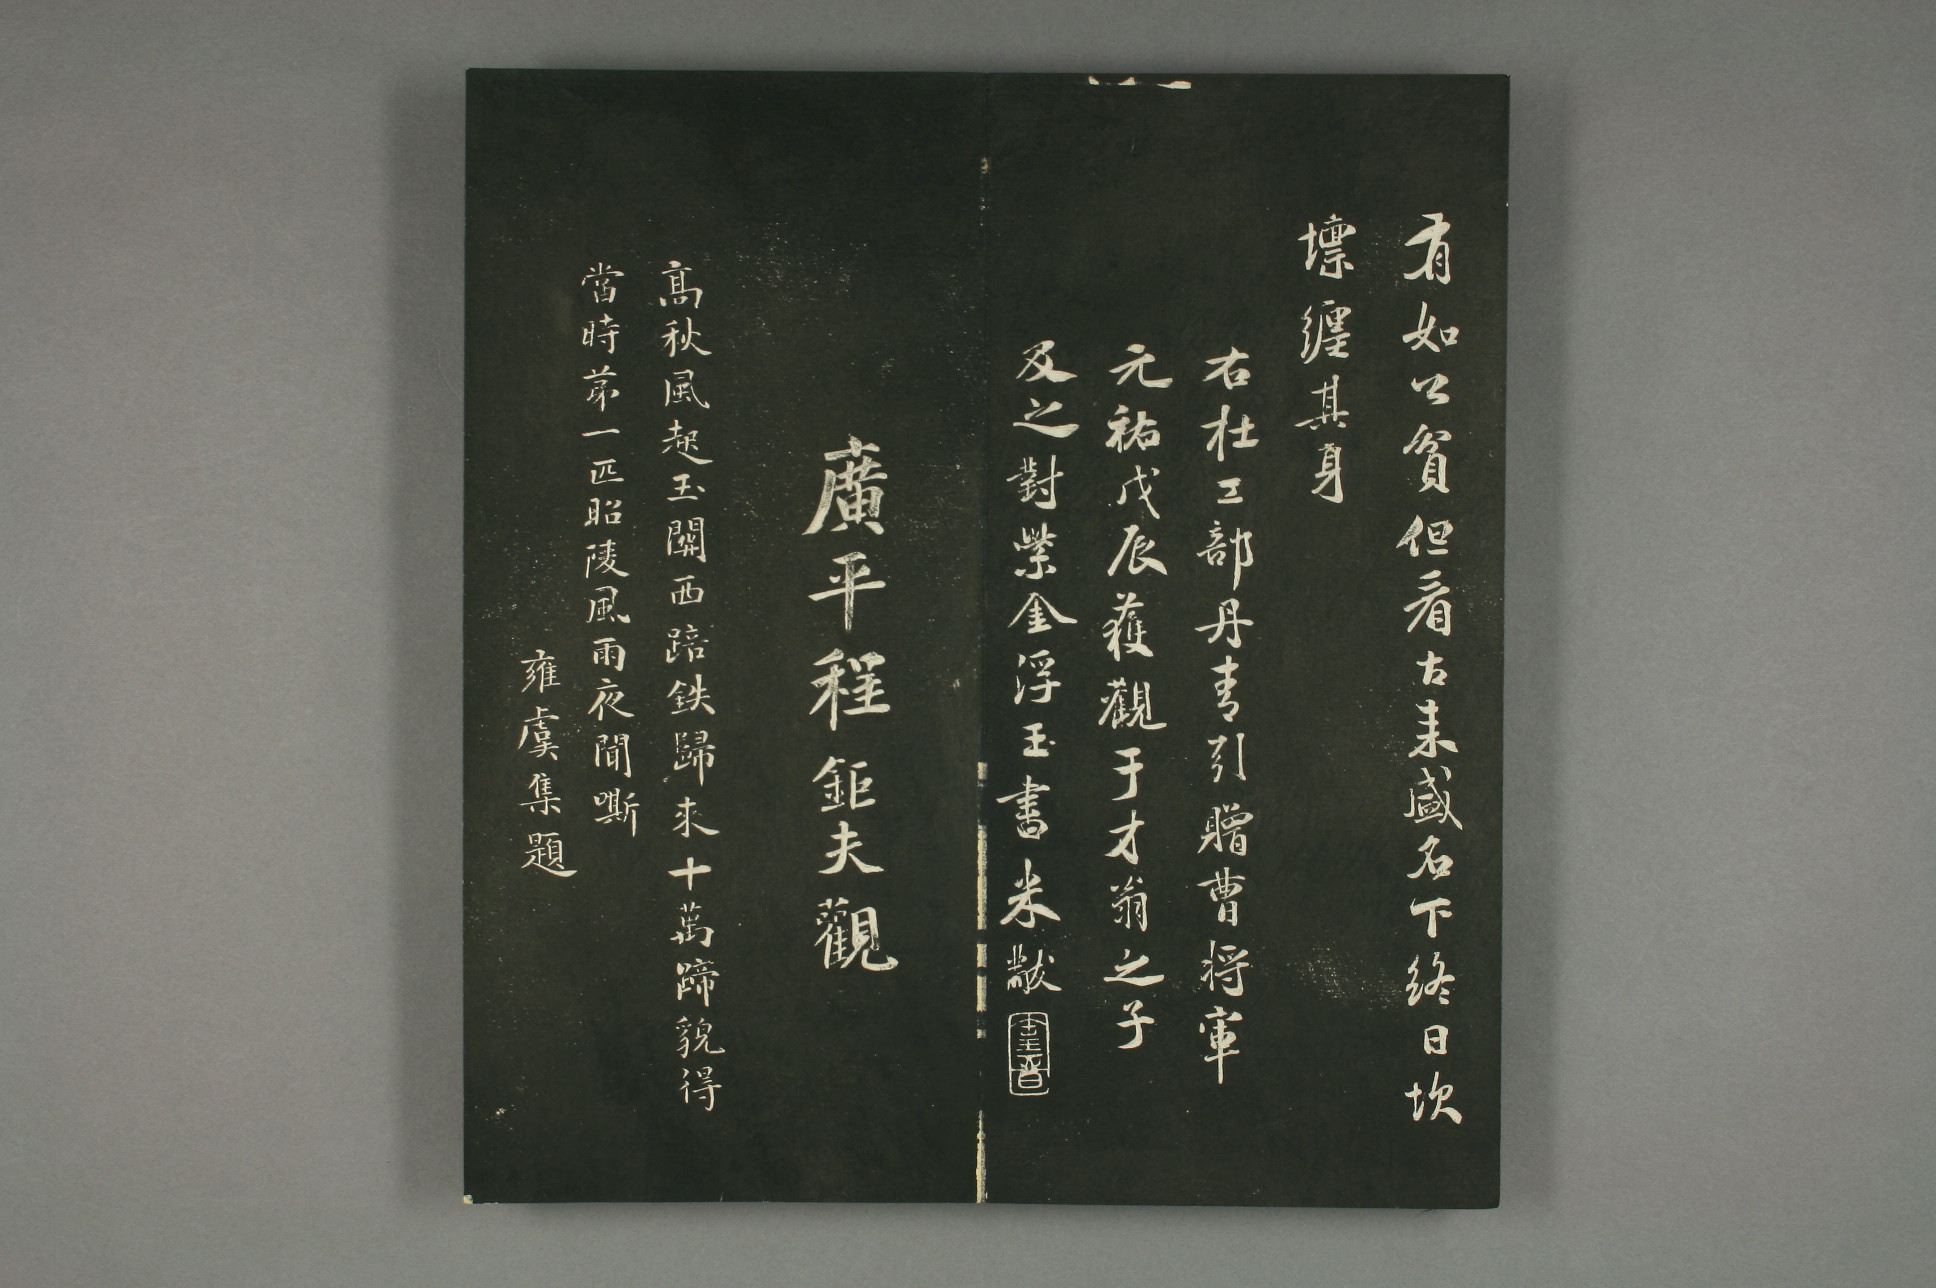 有如公貧但看古来盛名下終日坎
壈纏其身
右杜工部丹青引贈曹将軍
元祐戊辰獲觀于才翁之子
及之對紫金浮玉書米黻
廣平程鉅夫觀
髙秋風起玉關西踣鉄歸來十萬蹄貌得
當時苐一匹昭陵風雨夜聞嘶
雍虞集題